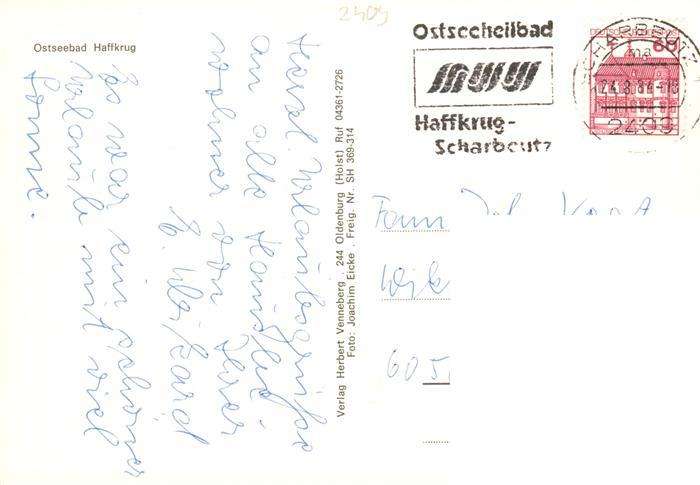 2409
Ostseebad Haffkrug
Ostseeheilbad
Haffkrug-
Scharbeutz
SCHARBEUTZ
24.8.84-18
2409
60
Herzl. Urlaubsgrüße
an alle Hausbe-
wohner von Ihrer
E.
Es war ein schöner
Urlaub mit viel
Sonne.
Verlag Herbert Venneberg . 244 Oldenburg (Holst) Ruf 04361-2726
Foto: Joachim Eicke . Freig. Nr. SH 369-314
Fam
605